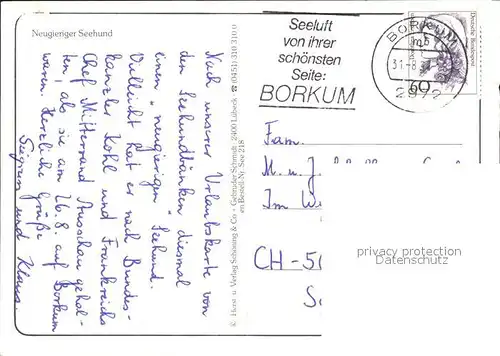 Neugieriger Seehund
Nach unserer Urlaubskarte von
den Seehundbänken diesmal
einen "neugierigen" Seehund.
Vielleicht hat er nach Bundes-
kanzler Kohl und Frankreichs
Chef Mitterrand Ausschau gehal-
ten, als sie am 26.8. auf Borkum
waren. Herzliche Grüße
und Klaus.
Verlag Schöning & Co + Gebrüder Schmidt · 2400 Lübeck ☎ (0451) 310 310
Best-Nr. See 218
Seeluft
von ihrer
schönsten
Seite:
BORKUM
BORKUM
31.-8.
2972
Deutsche Bundespost
60
Fam.
M. u. J.
Im
CH-5
privacy protection
Datenschutz